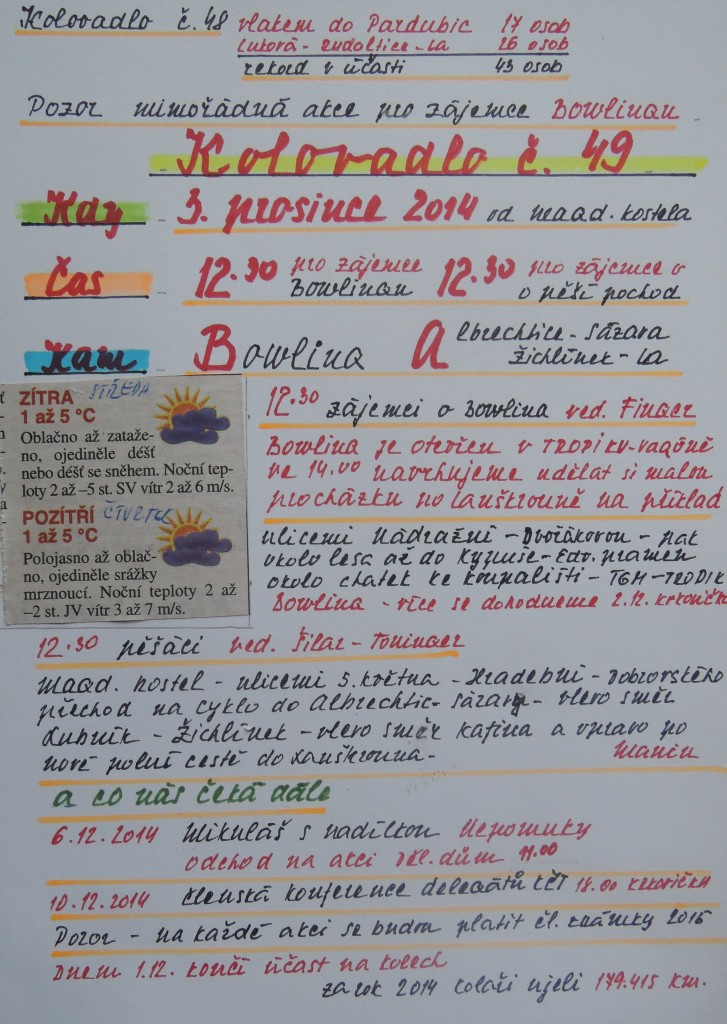 Kolovadlo č. 48 vlakem do Pardubic 17 osob
Luková - Rudoltice - La 26 osob
rekord v účasti 43 osob
Pozor mimořádná akce pro zájemce Bowlingu
Kolovadlo č. 49
Kdy 3. prosince 2014 od magd. kostela
Čas 12.30 pro zájemce Bowlingu 12.30 pro zájemce o pěší pochod
Kam Bowling Albrechtice - Sázava
Žichlínek - La
ZÍTRA STŘEDA
1 až 5 °C
Oblačno až zataže-
no, ojediněle déšť
nebo déšť se sněhem. Noční tep-
loty 2 až –5 st. SV vítr 2 až 6 m/s.
POZÍTŘÍ ČTVRTEK
1 až 5 °C
Polojasno až oblač-
no, ojediněle srážky
mrznoucí. Noční teploty 2 až
–2 st. JV vítr 3 až 7 m/s.
12.30 zájemci o Bowling ved. Finger
Bowling je otevřen v TROPIKU-vagóně
ve 14.00 navrhujeme udělat si malou
procházku po Lanškrouně na příklad
ulicemi Nádražní - Dvořákovou - pak
okolo lesa až do Kypuše - Edv. pramen
okolo chatek ke koupališti - TGM - TROPIK
Bowling - více se dohodneme 2.12. krkonička
12.30 pěšáci ved. Šilar - Toninger
Magd. kostel - ulicemi 5. května - Hradební - Dobrovského
přechod na cyklo do Albrechtic - Sázavy - vlevo směr
Lubník - Žichlínek - vlevo směr Kafina a vpravo po
nové polní cestě do Lanškrouna - Maniu
a co nás čeká dále
6.12.2014 Mikuláš s nadílkou Nepomuky
odchod na akci Děl. dům 11.00
10.12.2014 členská konference delegátů KČT 18.00 krkonička
Pozor - na každé akci se budou platit čl. známky 2015
Dnem 1.12. končí účast na kolech
za rok 2014 kolaři ujeli 179.415 km.